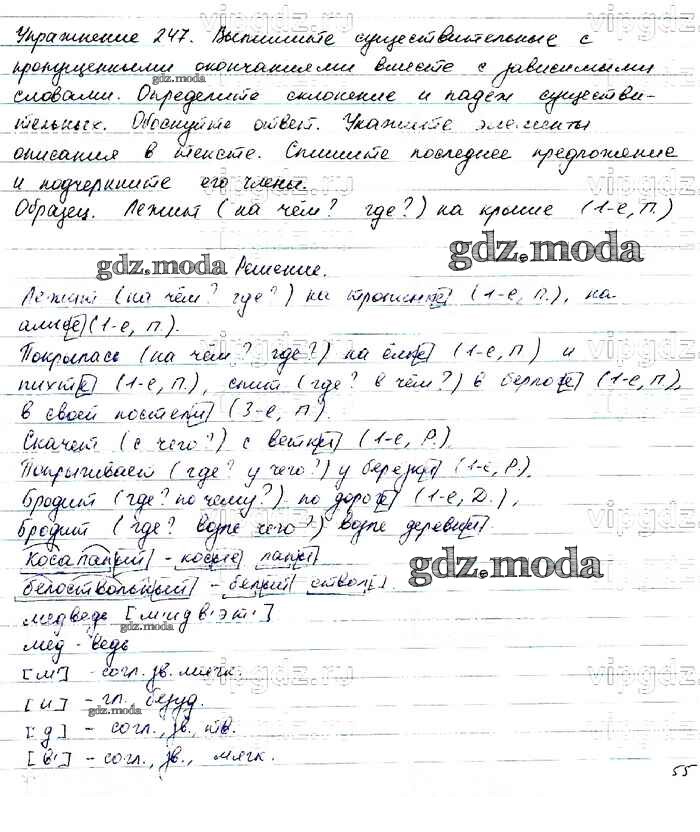 Упражнение 247. Выпишите существительные с
пропущенными окончаниями вместе с зависимыми
gdz.moda
словами. Определите склонение и падеж существи-
тельных. Обоснуйте ответ. Укажите элементы
описания в тексте. Спишите последнее предложение
и подчеркните его члены.
Образец. Лежит (на чём? где?) на крыше (1-е, П.)
gdz.moda Решение. gdz.moda
Лежит (на чём? где?) на тропинке (1-е, п.), на
(1-е, п.).
Покрылась (на чём? где?) на ёлке (1-е, П) и
пихте (1-е, П.), спит (где? в чём?) в берлоге (1-е, П),
в своей постели (3-е, П.).
Скачет (с чего?) с ветки (1-е, Р.).
Покрикивает (где? у чего?) у березки (1-е, Р.).
Бродит (где? по чему?) по дороге (1-е, Д.),
бродит (где? возле чего?) возле деревни.
Косолапый - косые лапы
gdz.moda
белоствольный - белый ствол.
медведь [м'идв'эт']
gdz.moda
мед - ведь
[м'] - согл. зв. мягк.
[и] - гл. безуд.
gdz.moda
[д] - согл., зв., тв.
[в'] - согл., зв., мягк.
55
vipgdz.ru